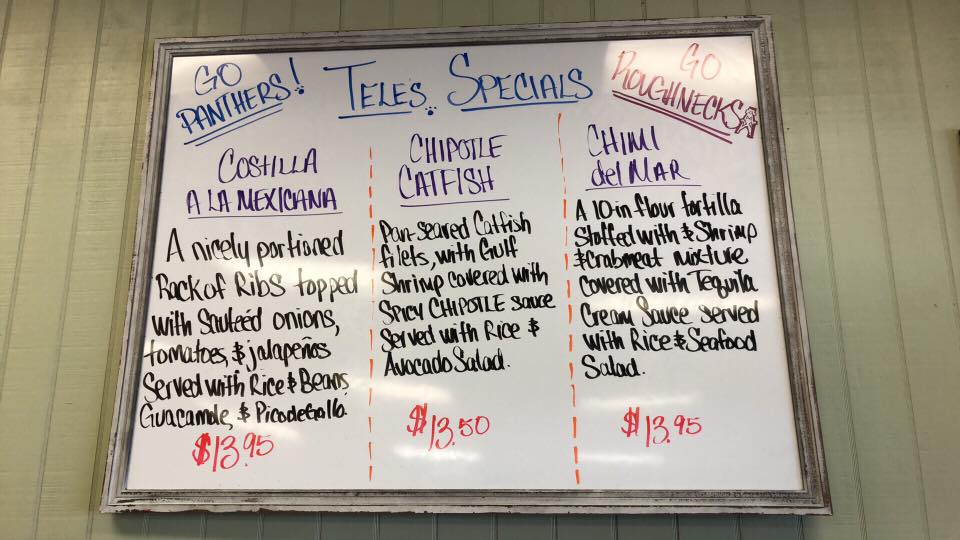 GO
PANTHERS!
TELES SPECIALS
GO
ROUGHNECKS
COSTILLA
A LA MEXICANA
A nicely portioned
Rack of Ribs topped
with Sauteéd onions,
tomatoes, & jalapeños
Served with Rice & Beans
Guacamole, & Pico de Gallo.
$13.95
CHIPOTLE
CATFISH
Pan-seared Catfish
filets, with Gulf
Shrimp covered with
SPICY CHIPOTLE sauce
Served with Rice &
Avocado Salad.
$13.50
CHIMI
del MAR
A 10-in flour tortilla
Stoffed with & Shrimp
& Crabmeat mixture
covered with Tequila
Cream Sauce served
with Rice & Seafood
Salad.
$13.95